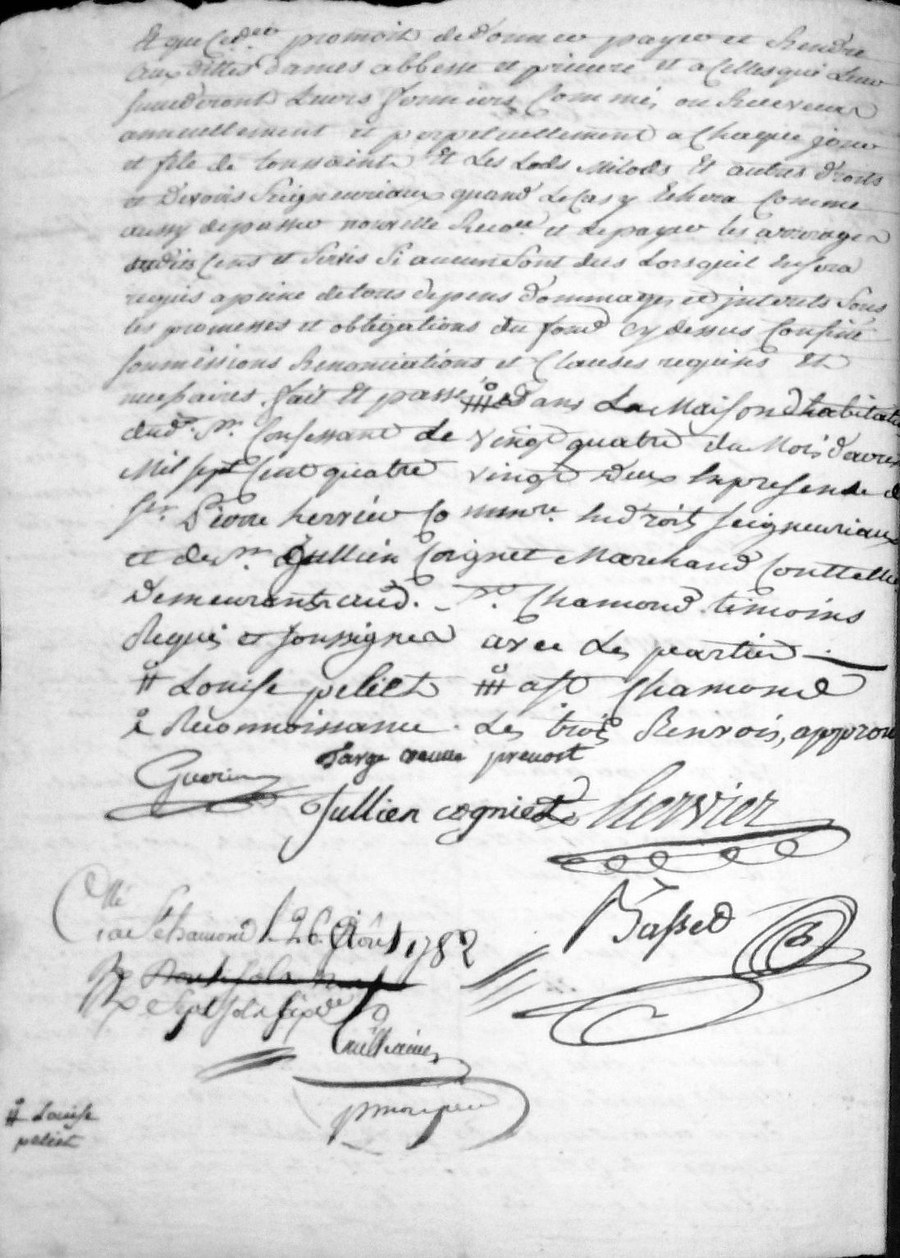 et que led.
promoit de donner payer et Rendre
aux dittes dames abbesse et prieure et a Celles qui Leur
succederont Leurs fermiers, Commis, ou Receveur
annuellement et perpetuellement a Chaque jour
et fête de toussaints Et Les Lods Milods Et autres droits
et Devoirs Seigneuriaux quand Le Cas y Echera Comme
aussy de passer nouvelle et de payer les arrerages
Cens et Servis Si aucuns sont dus Lorsquil En sera
requis a peine de tous depens dommages et interets Sous
les promesses et obligations du fond Cy dessus Confiné
soumissions Renonciations et Clauses requises Et
necessaires, fait Et passé dans La Maison d'habitati
dud. Sr. Confessant Le vingt quatre du Mois d'avril
Mil sept Cent quatre vingt Deux En presence d
Sr. Pierre hervier Commre. En Droits Seigneuriaux
et de Sr. Jullien Coignet Marchand Couttellie
Demeurants aud. St. Chamond. temoins
Requis et soussignes avec Les parties
# Louise peliet a St Chamond
Reconnoissance. Les trois Renvois, approu
Guerin farge veuve prevost
Jullien cogniet hervier
Basset
Cllé
a St Chamond 26 Aôut 1782
Rx
sept sols six
# Louise
peliet